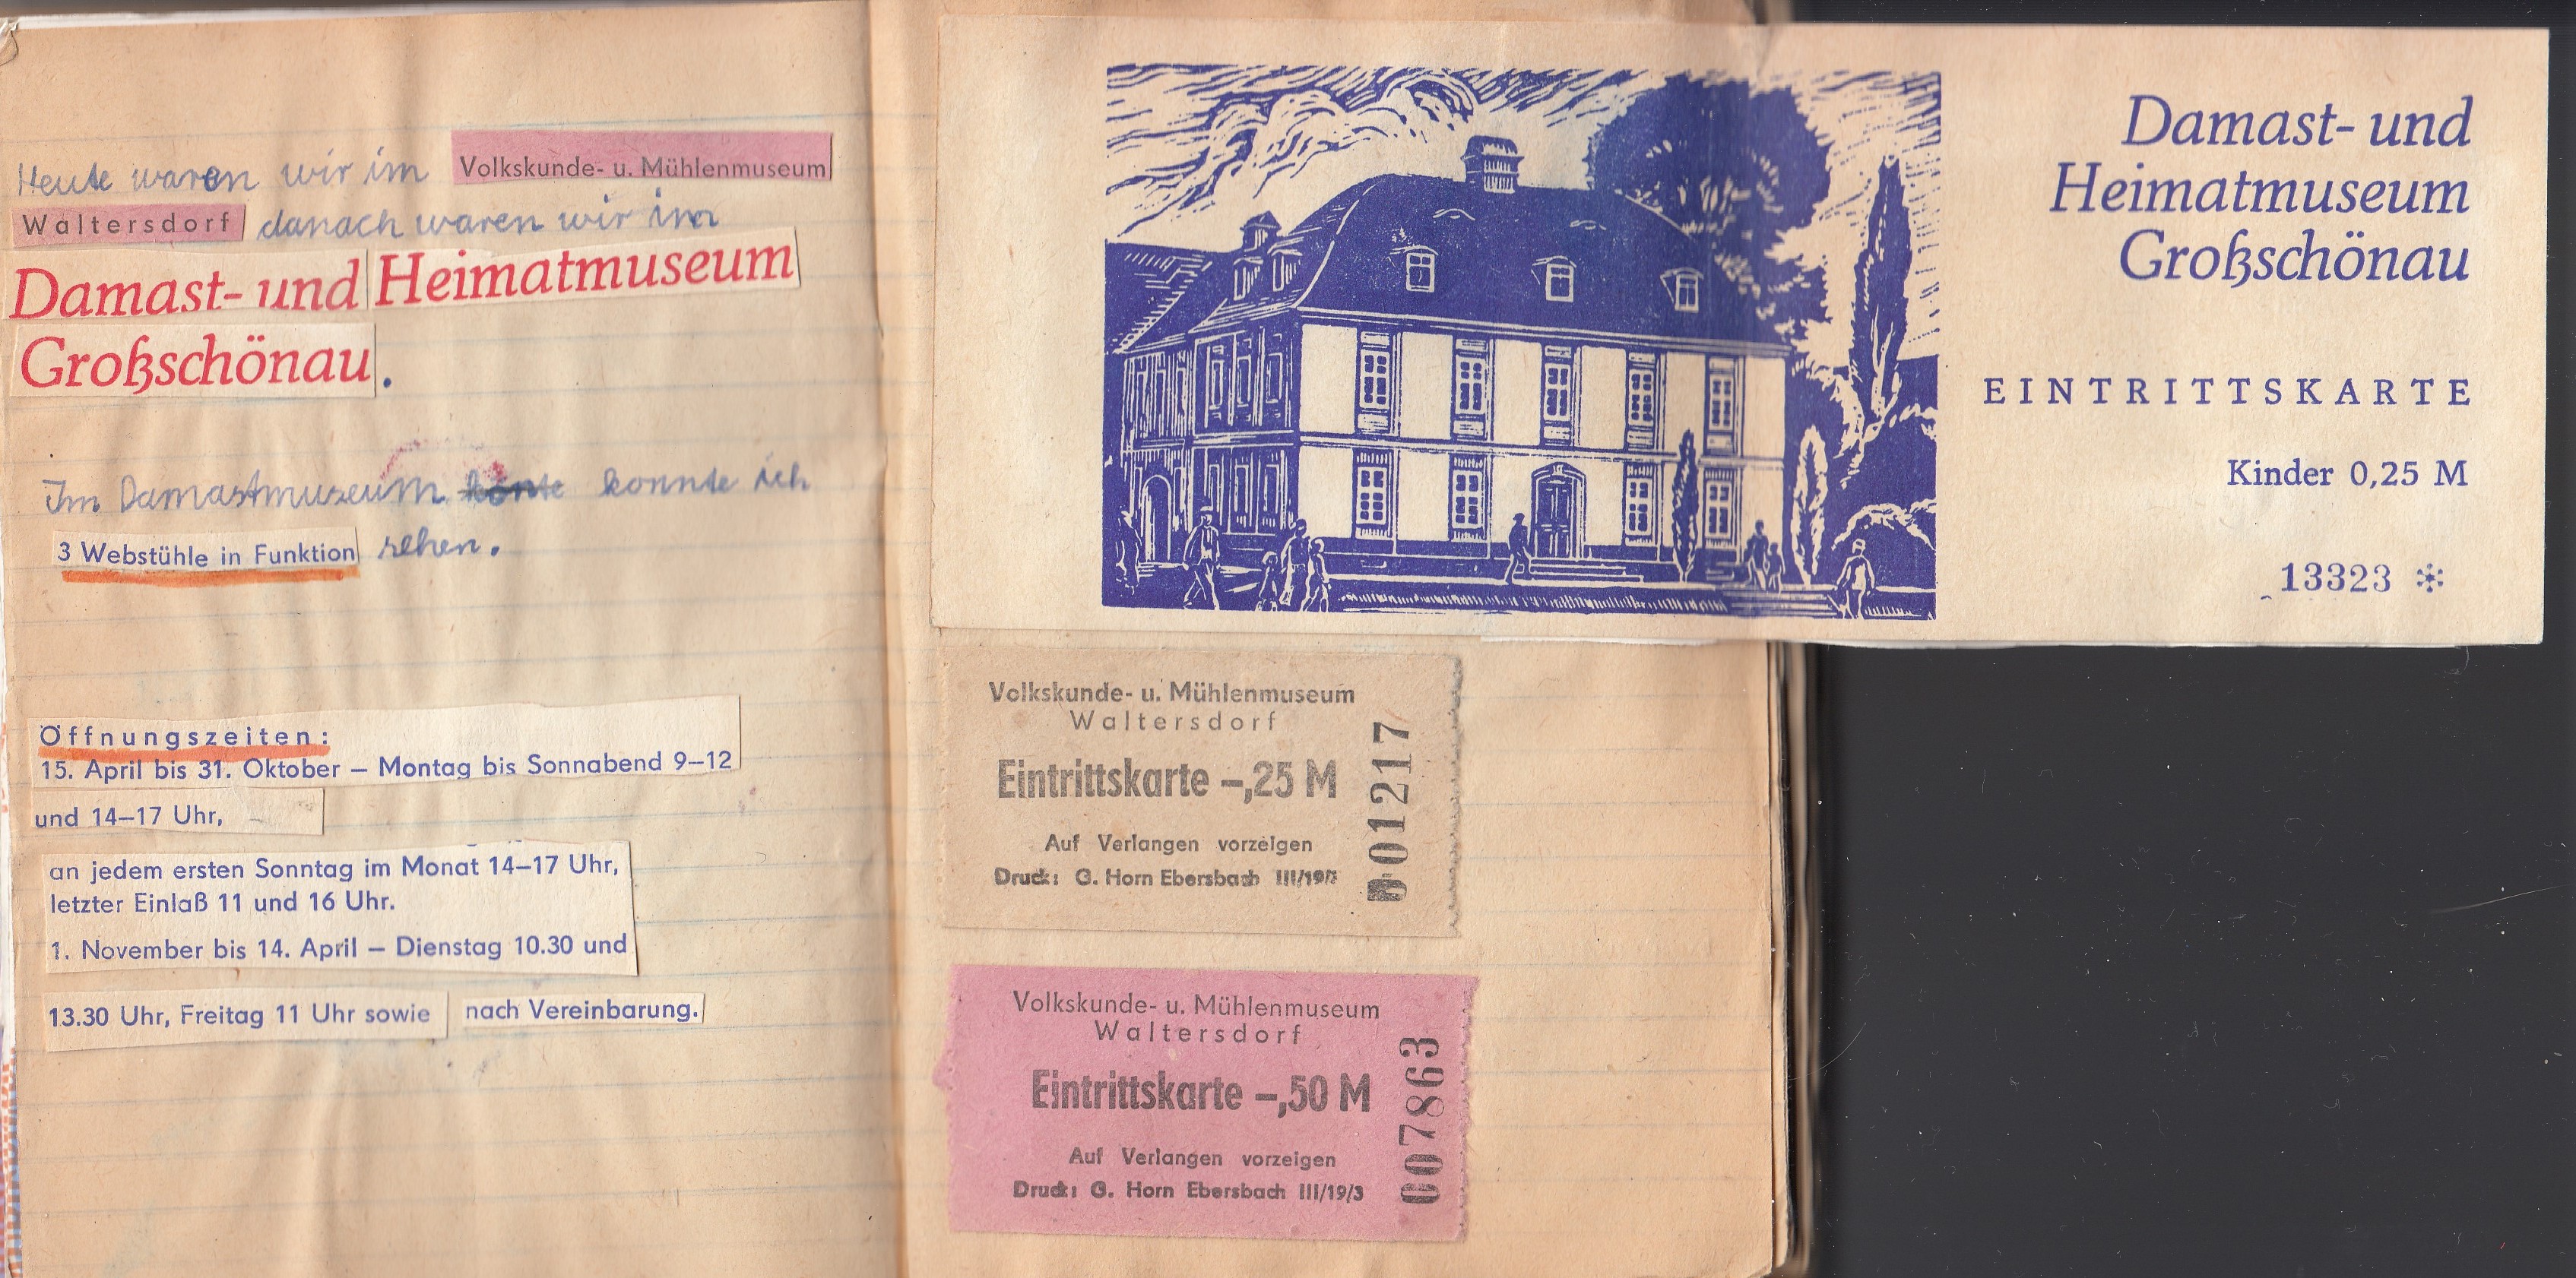 Heute waren wir im Volkskunde- u. Mühlenmuseum
Waltersdorf danach waren wir im
Damast- und Heimatmuseum
Großschönau.
Im Damastmuseum konte konnte ich
3 Webstühle in Funktion sehen.
Öffnungszeiten:
15. April bis 31. Oktober – Montag bis Sonnabend 9–12
und 14–17 Uhr,
an jedem ersten Sonntag im Monat 14–17 Uhr,
letzter Einlaß 11 und 16 Uhr.
1. November bis 14. April – Dienstag 10.30 und
13.30 Uhr, Freitag 11 Uhr sowie nach Vereinbarung.
Damast- und
Heimatmuseum
Großschönau
EINTRITTSKARTE
Kinder 0,25 M
13323 *
Volkskunde- u. Mühlenmuseum
Waltersdorf
Eintrittskarte –,25 M
Auf Verlangen vorzeigen
Druck: G. Horn Ebersbach III/19/3
001217
Volkskunde- u. Mühlenmuseum
Waltersdorf
Eintrittskarte –,50 M
Auf Verlangen vorzeigen
Druck: G. Horn Ebersbach III/19/3
007863